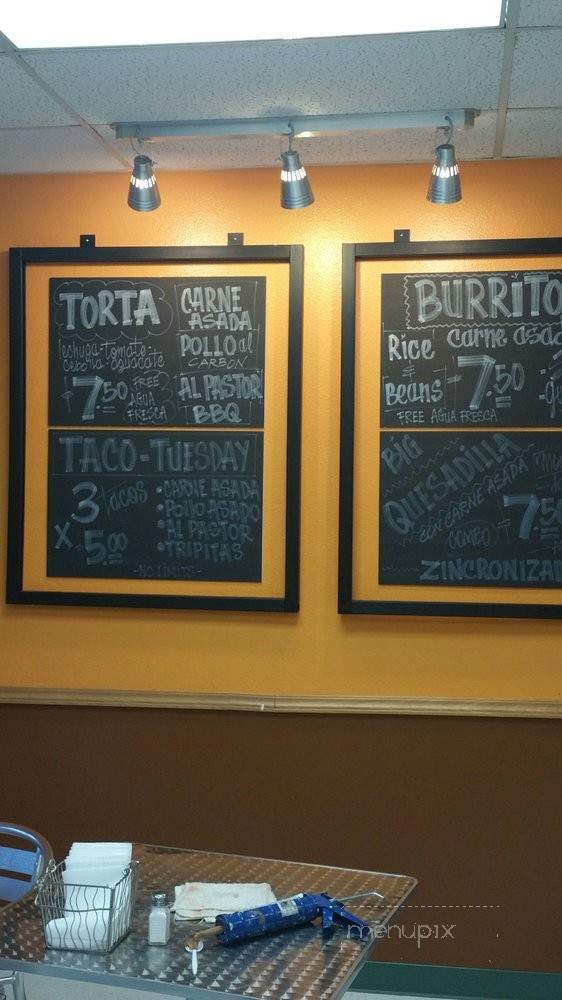 TORTA
lechuga-tomate-
cebolla-aguacate
7.50 FREE
AGUA
FRESCA
CARNE
ASADA
POLLO al
CARBON
AL PASTOR
BBQ
TACO-TUESDAY
3 tacos
X 5.00
• CARNE ASADA
• POLLO ASADO
• AL PASTOR
• TRIPITAS
-NO LIMITS-
BURRITO
Rice
&
Beans
carne asad
7.50
FREE AGUA FRESCA
BIG
QUESADILLA
CON CARNE ASADA
COMBO
7.50
ZINCRONIZAD
menupix